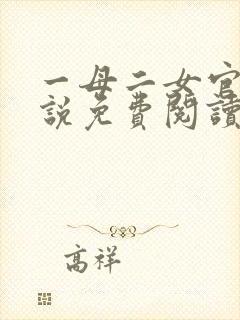 一母二女官
說免費閱讀
高祥